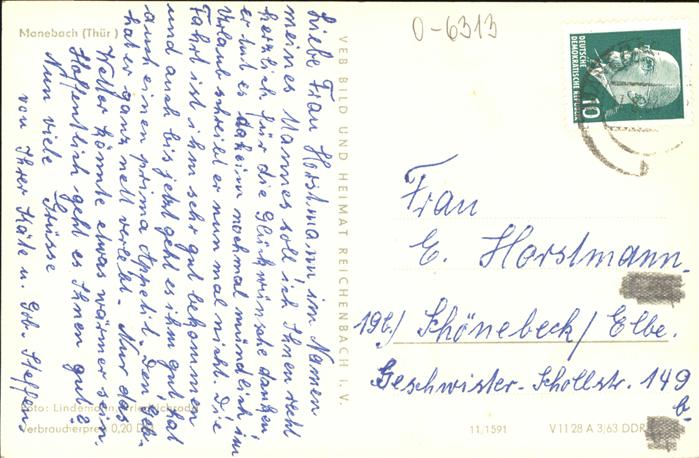 Manebach (Thür.)
O-6313
Liebe Frau Horstmann im Namen
meines Mannes soll ich Ihnen recht
herzlich für die Glückwünsche danken
er tut es daheim nochmal mündlich im
Urlaub schreibt er nun mal nicht. Die
Fahrt ist ihm sehr gut bekommen
und auch bis jetzt geht es ihm gut hat
auch einen prima Appetit. Den Geb.
hat er ganz nett verlebt. Nur das
Wetter könnte etwas wärmer sein.
Hoffentlich geht es Ihnen gut?
Nun viele Grüsse
von Ihrer Käte u. Gob. Steffen
VEB BILD UND HEIMAT REICHENBACH I. V.
DEUTSCHE
DEMOKRATISCHE REPUBLIK
10
Frau
E. Horstmann
Schönebeck/Elbe.
Geschwister-Schollstr. 149
b.
Foto: Lindemann,
Verbraucherpreis 0,20 D
11,1591
V 11 28 A 3/63 DDR